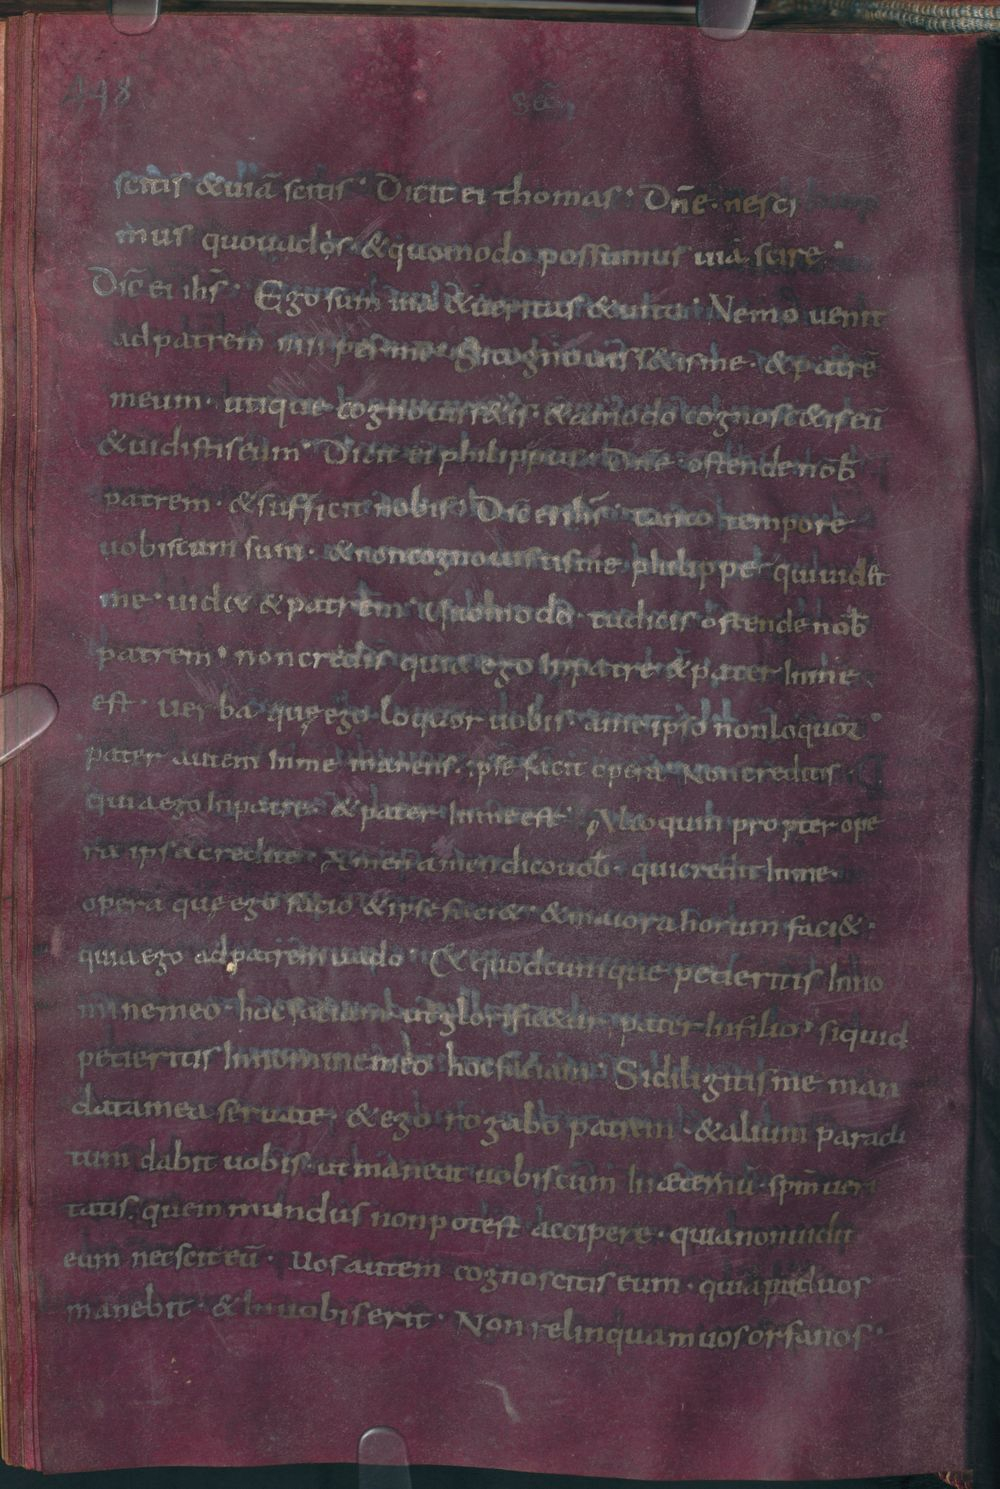 448
Secd̄
scitis &uiā scitis · Dicit ei thomas · Dn̄e · nesci
mus quouadis · &quomodo possumus uiā scire ·
Dic̄ ei ih̄s · Ego sum uia &ueritas &uita · Nemo uenit
adpatrem nisi perme · Sicognouiss&isme · &patrē
meum · utique cognouiss&is · &amodo cognosc&iseū
&uidistiseum · Dicit ei philippus · Dn̄e ostende nob̄
patrem · &sufficit nobis · Dic̄ ei ih̄s · tanto tempore
uobiscum sum · &noncognouistisme philippe quiuidet
me · uid& &patrem · Quomodo · tudicis ostende nob̄
patrem · noncredis quia ego inpatre &pater inme
est · uerba quę ego loquor uobis · ameipso nonloquor ·
pater autem inme manens · ipse facit opera · Noncreditis
quiaego inpatre · &pater inme est · Alioquin propter ope
ra ipsa credite · Amen amen dicouob̄ · quicredit inme ·
opera quę ego facio &ipse faci& · &maiora horum faci& ·
quia ego adpatrem uado · &quodcumque petieritis inno
minemeo · hoc faciam · ut glorific&ur pater infilio · siquid
petieritis innomine meo hocfaciam · Sidiligitis me man
datamea seruate · &ego rogabo patrem · &alium paracli
tum dabit uobis · ut maneat uobiscum in æternū · spm̄ ueri
tatis · quem mundus nonpotest accipere · quianonuidit
eum necsciteū · Uos autem cognoscitis eum · quiapud uos
manebit · &inuobis erit · Non relinquam uos orfanos ·